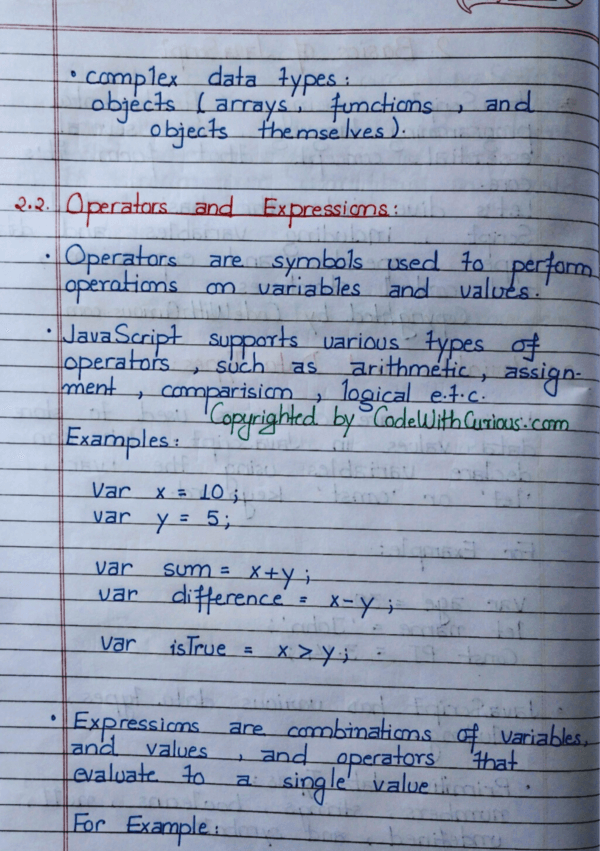 • complex data types:
objects (arrays, functions, and
objects themselves).
2.2. Operators and Expressions:
• Operators are symbols used to perform
operations on variables and values.
• JavaScript supports various types of
operators, such as arithmetic, assign-
ment, comparision, logical e.t.c.
Copyrighted by CodeWithCurious.com
Examples:
Var x = 10;
var y = 5;
var sum = x+y;
var difference = x-y;
var isTrue = x > y;
• Expressions are combinations of variables,
and values, and operators that
evaluate to a single value.
For Example: